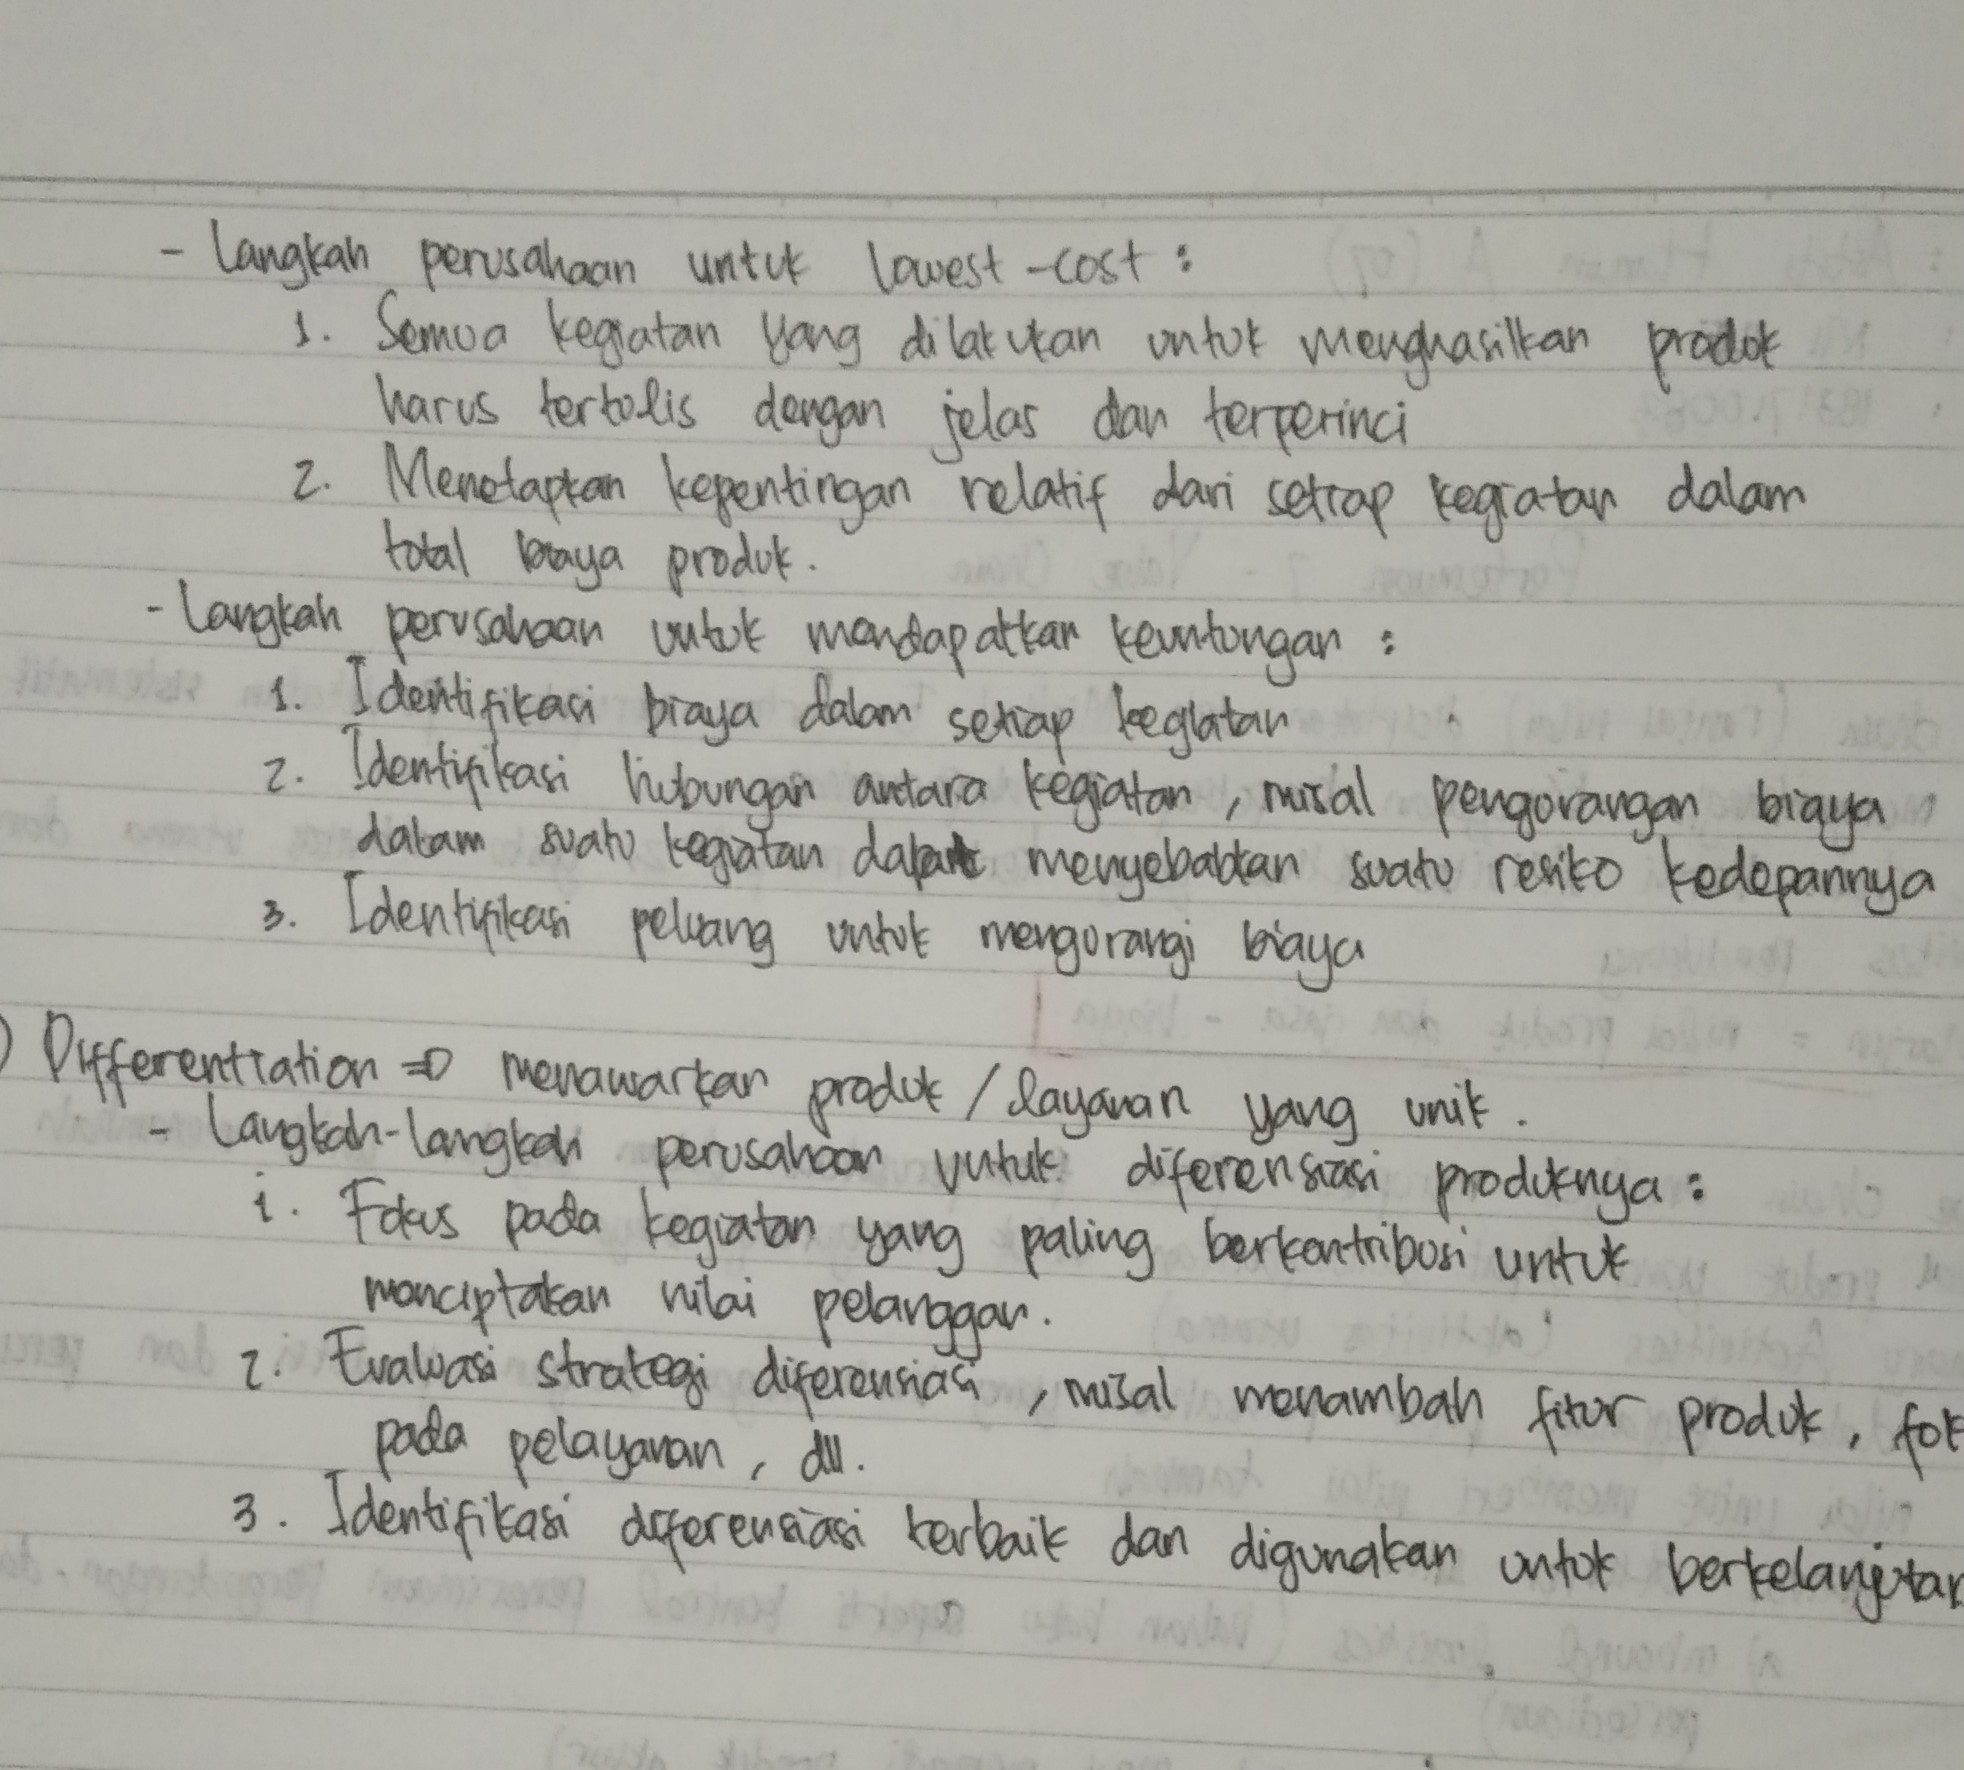 - Langkah perusahaan untuk lowest-cost :
1. Semua kegiatan yang dilakukan untuk menghasilkan produk
harus tertulis dengan jelas dan terperinci
2. Menetapkan kepentingan relatif dari setiap kegiatan dalam
total biaya produk.
- Langkah perusahaan untuk mendapatkan keuntungan :
1. Identifikasi biaya dalam setiap kegiatan
2. Identifikasi hubungan antara kegiatan, misal pengurangan biaya
dalam suatu kegiatan dapat menyebabkan suatu resiko kedepannya
3. Identifikasi peluang untuk mengurangi biaya
) Differentiation => menawarkan produk / layanan yang unik.
- Langkah-langkah perusahaan untuk diferensiasi produknya :
1. Fokus pada kegiatan yang paling berkontribusi untuk
menciptakan nilai pelanggan.
2. Evaluasi strategi diferensiasi, misal menambah fitur produk, fok
pada pelayanan, dll.
3. Identifikasi diferensiasi terbaik dan digunakan untuk berkelanjutan